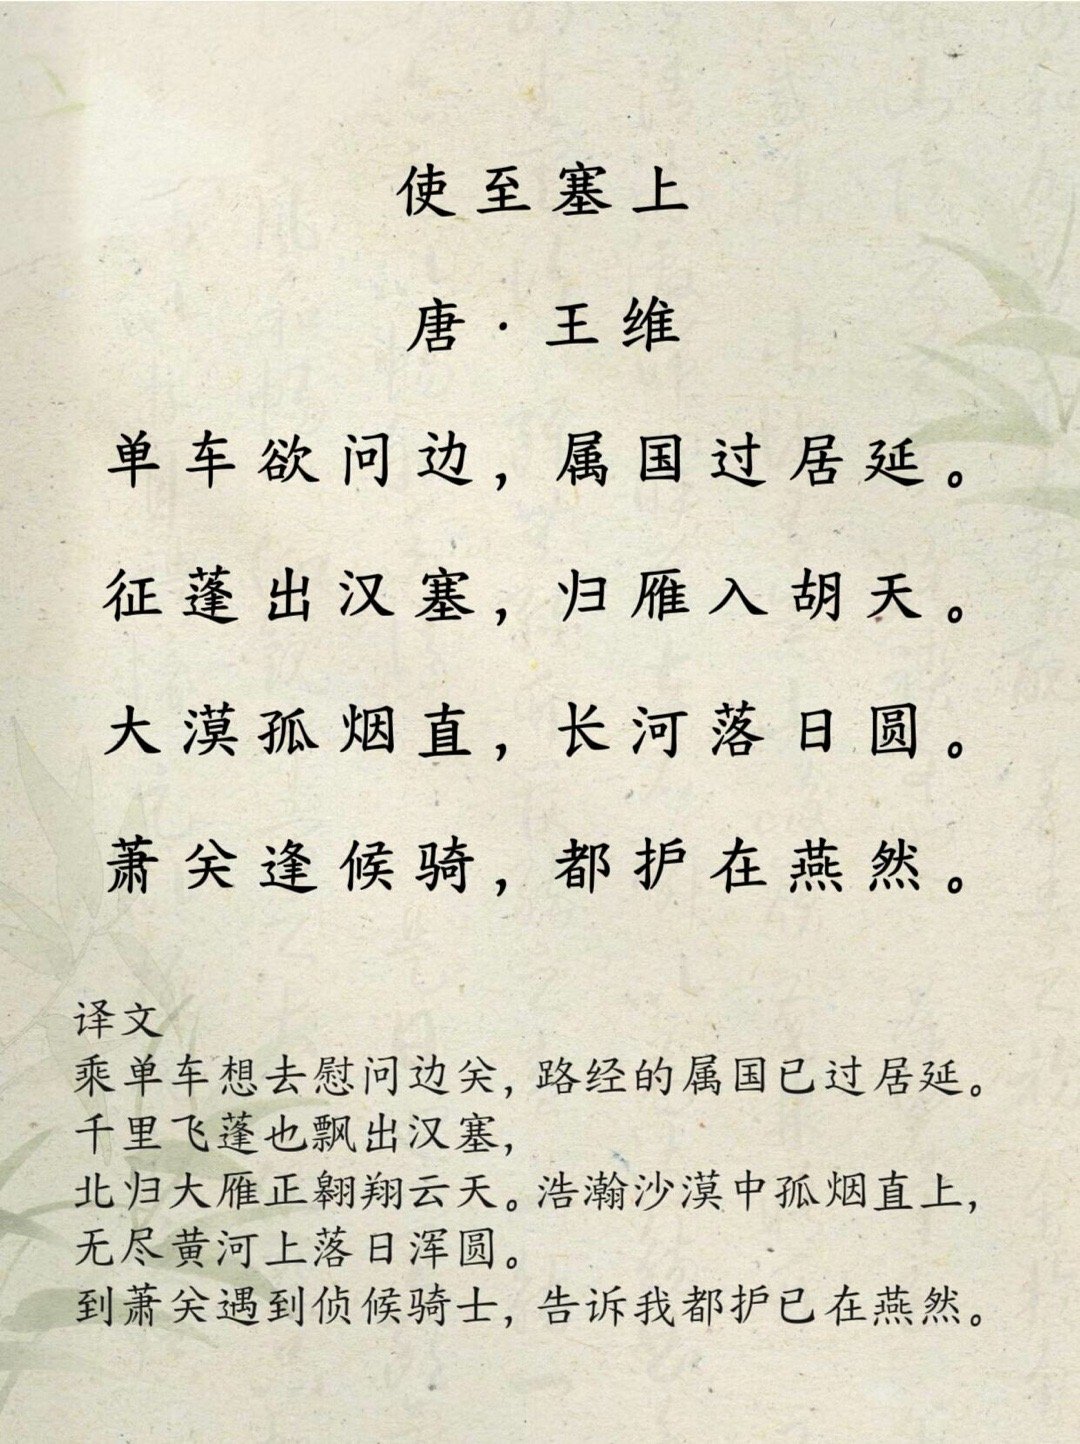 使至塞上
唐·王维
单车欲问边，属国过居延。
征蓬出汉塞，归雁入胡天。
大漠孤烟直，长河落日圆。
萧关逢候骑，都护在燕然。
译文
乘单车想去慰问边关，路经的属国已过居延。
千里飞蓬也飘出汉塞，
北归大雁正翱翔云天。浩瀚沙漠中孤烟直上，
无尽黄河上落日浑圆。
到萧关遇到侦候骑士，告诉我都护已在燕然。